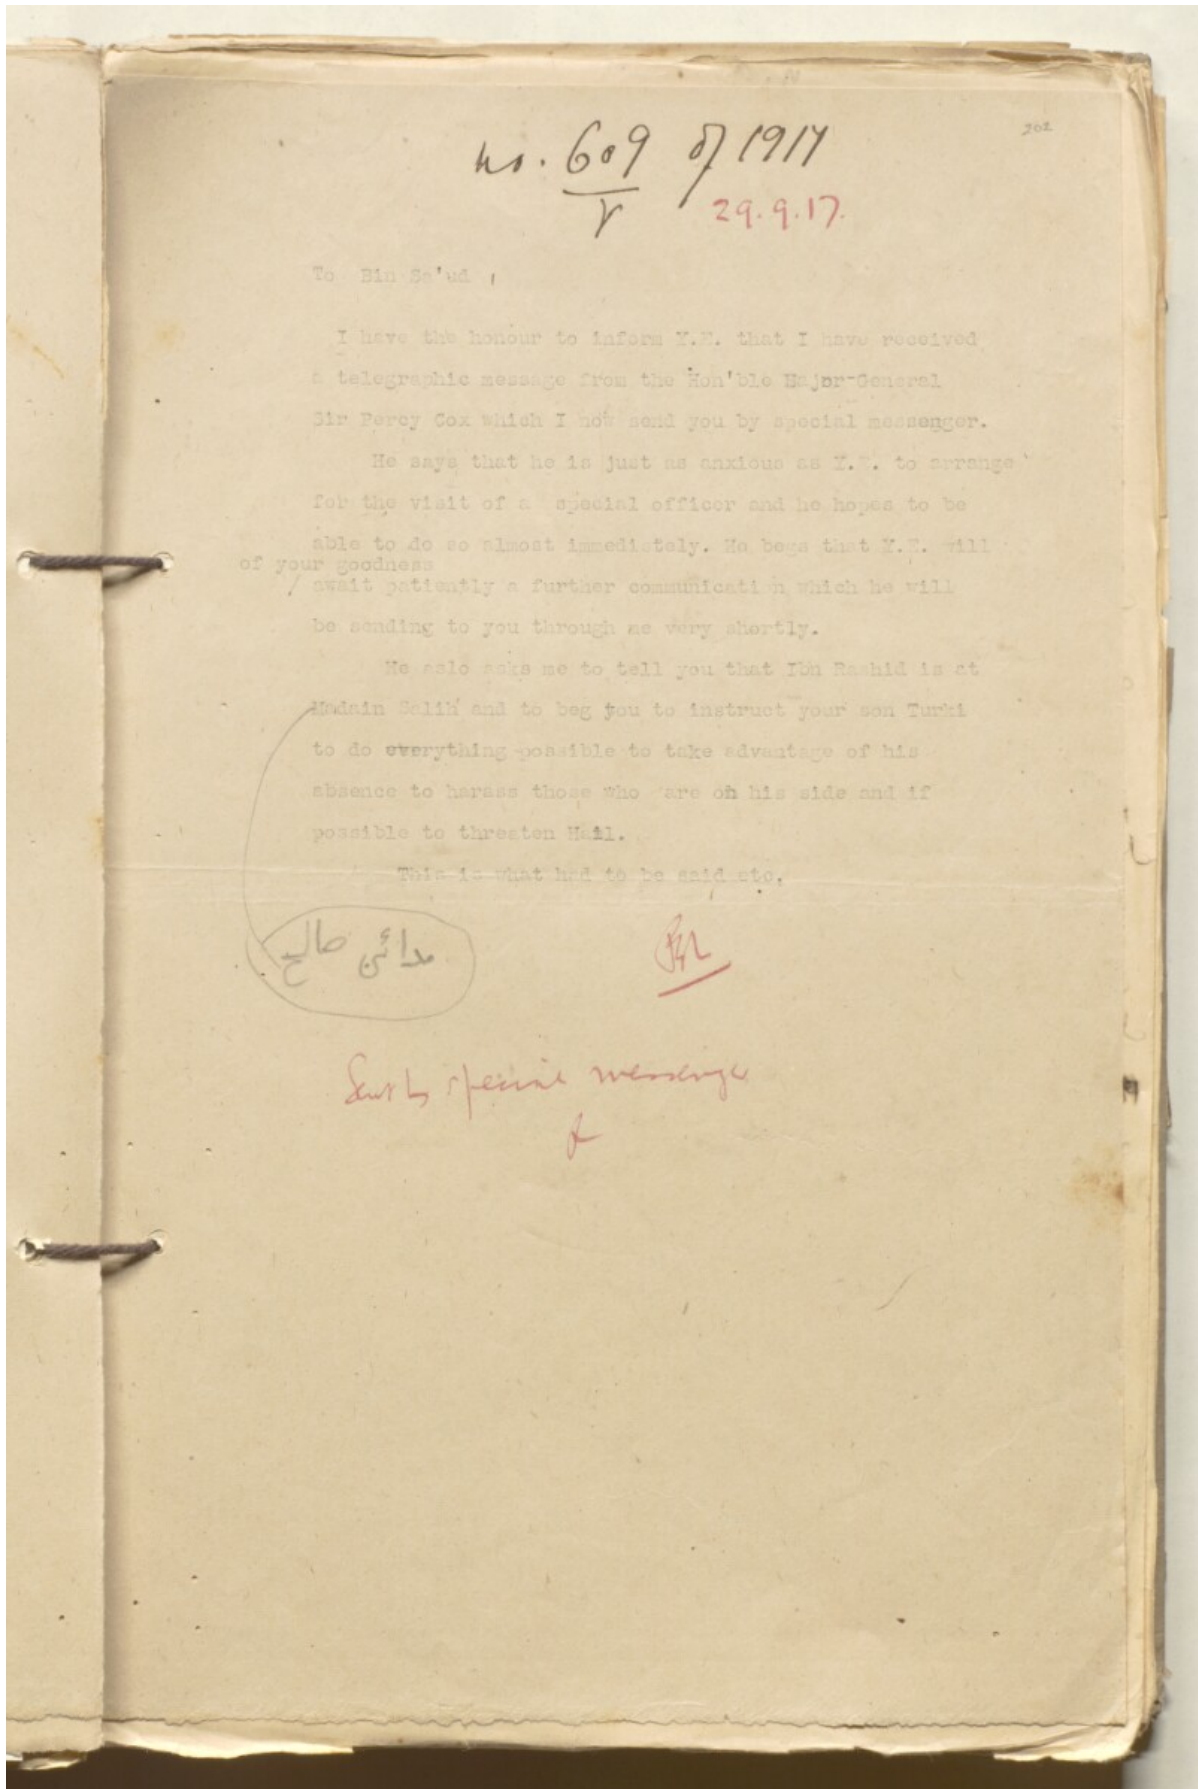 201
No. 609 of 1917
29.9.17.
To Bin Sa'ud,
I have the honour to inform Y.E. that I have received
a telegraphic message from the Hon'ble Major-General
Sir Percy Cox which I now send you by special messenger.
He says that he is just as anxious as Y.E. to arrange
for the visit of a special officer and he hopes to be
able to do so almost immediately. He begs that Y.E. will
of your goodness
/ await patiently a further communication which he will
be sending to you through me very shortly.
He aslo asks me to tell you that Ibn Rashid is at
Madain Salih and to beg you to instruct your son Turki
to do everything possible to take advantage of his
absence to harass those who are on his side and if
possible to threaten Hail.
This is what had to be said etc.
مدائن صالح
Sent by special messenger